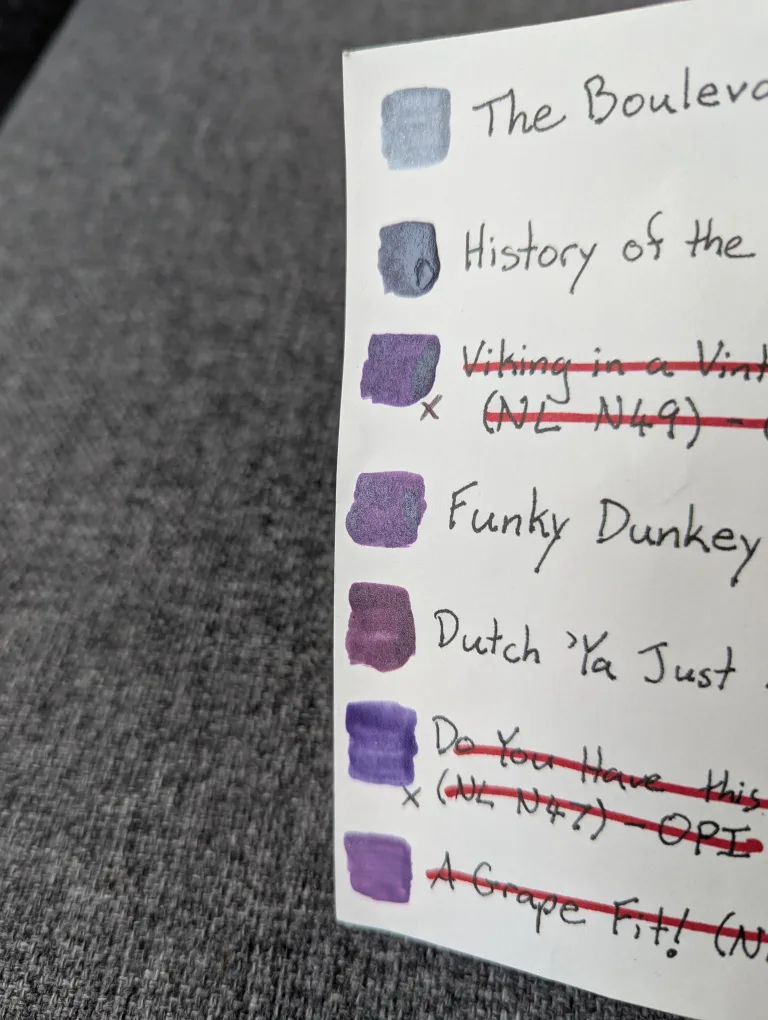 The Bouleva
History of the
Viking in a Vint
(NL N49) - (
Funky Dunkey
Dutch 'Ya Just
x
Do You Have this
x (NL N47) - OPI
A Grape Fit! (N